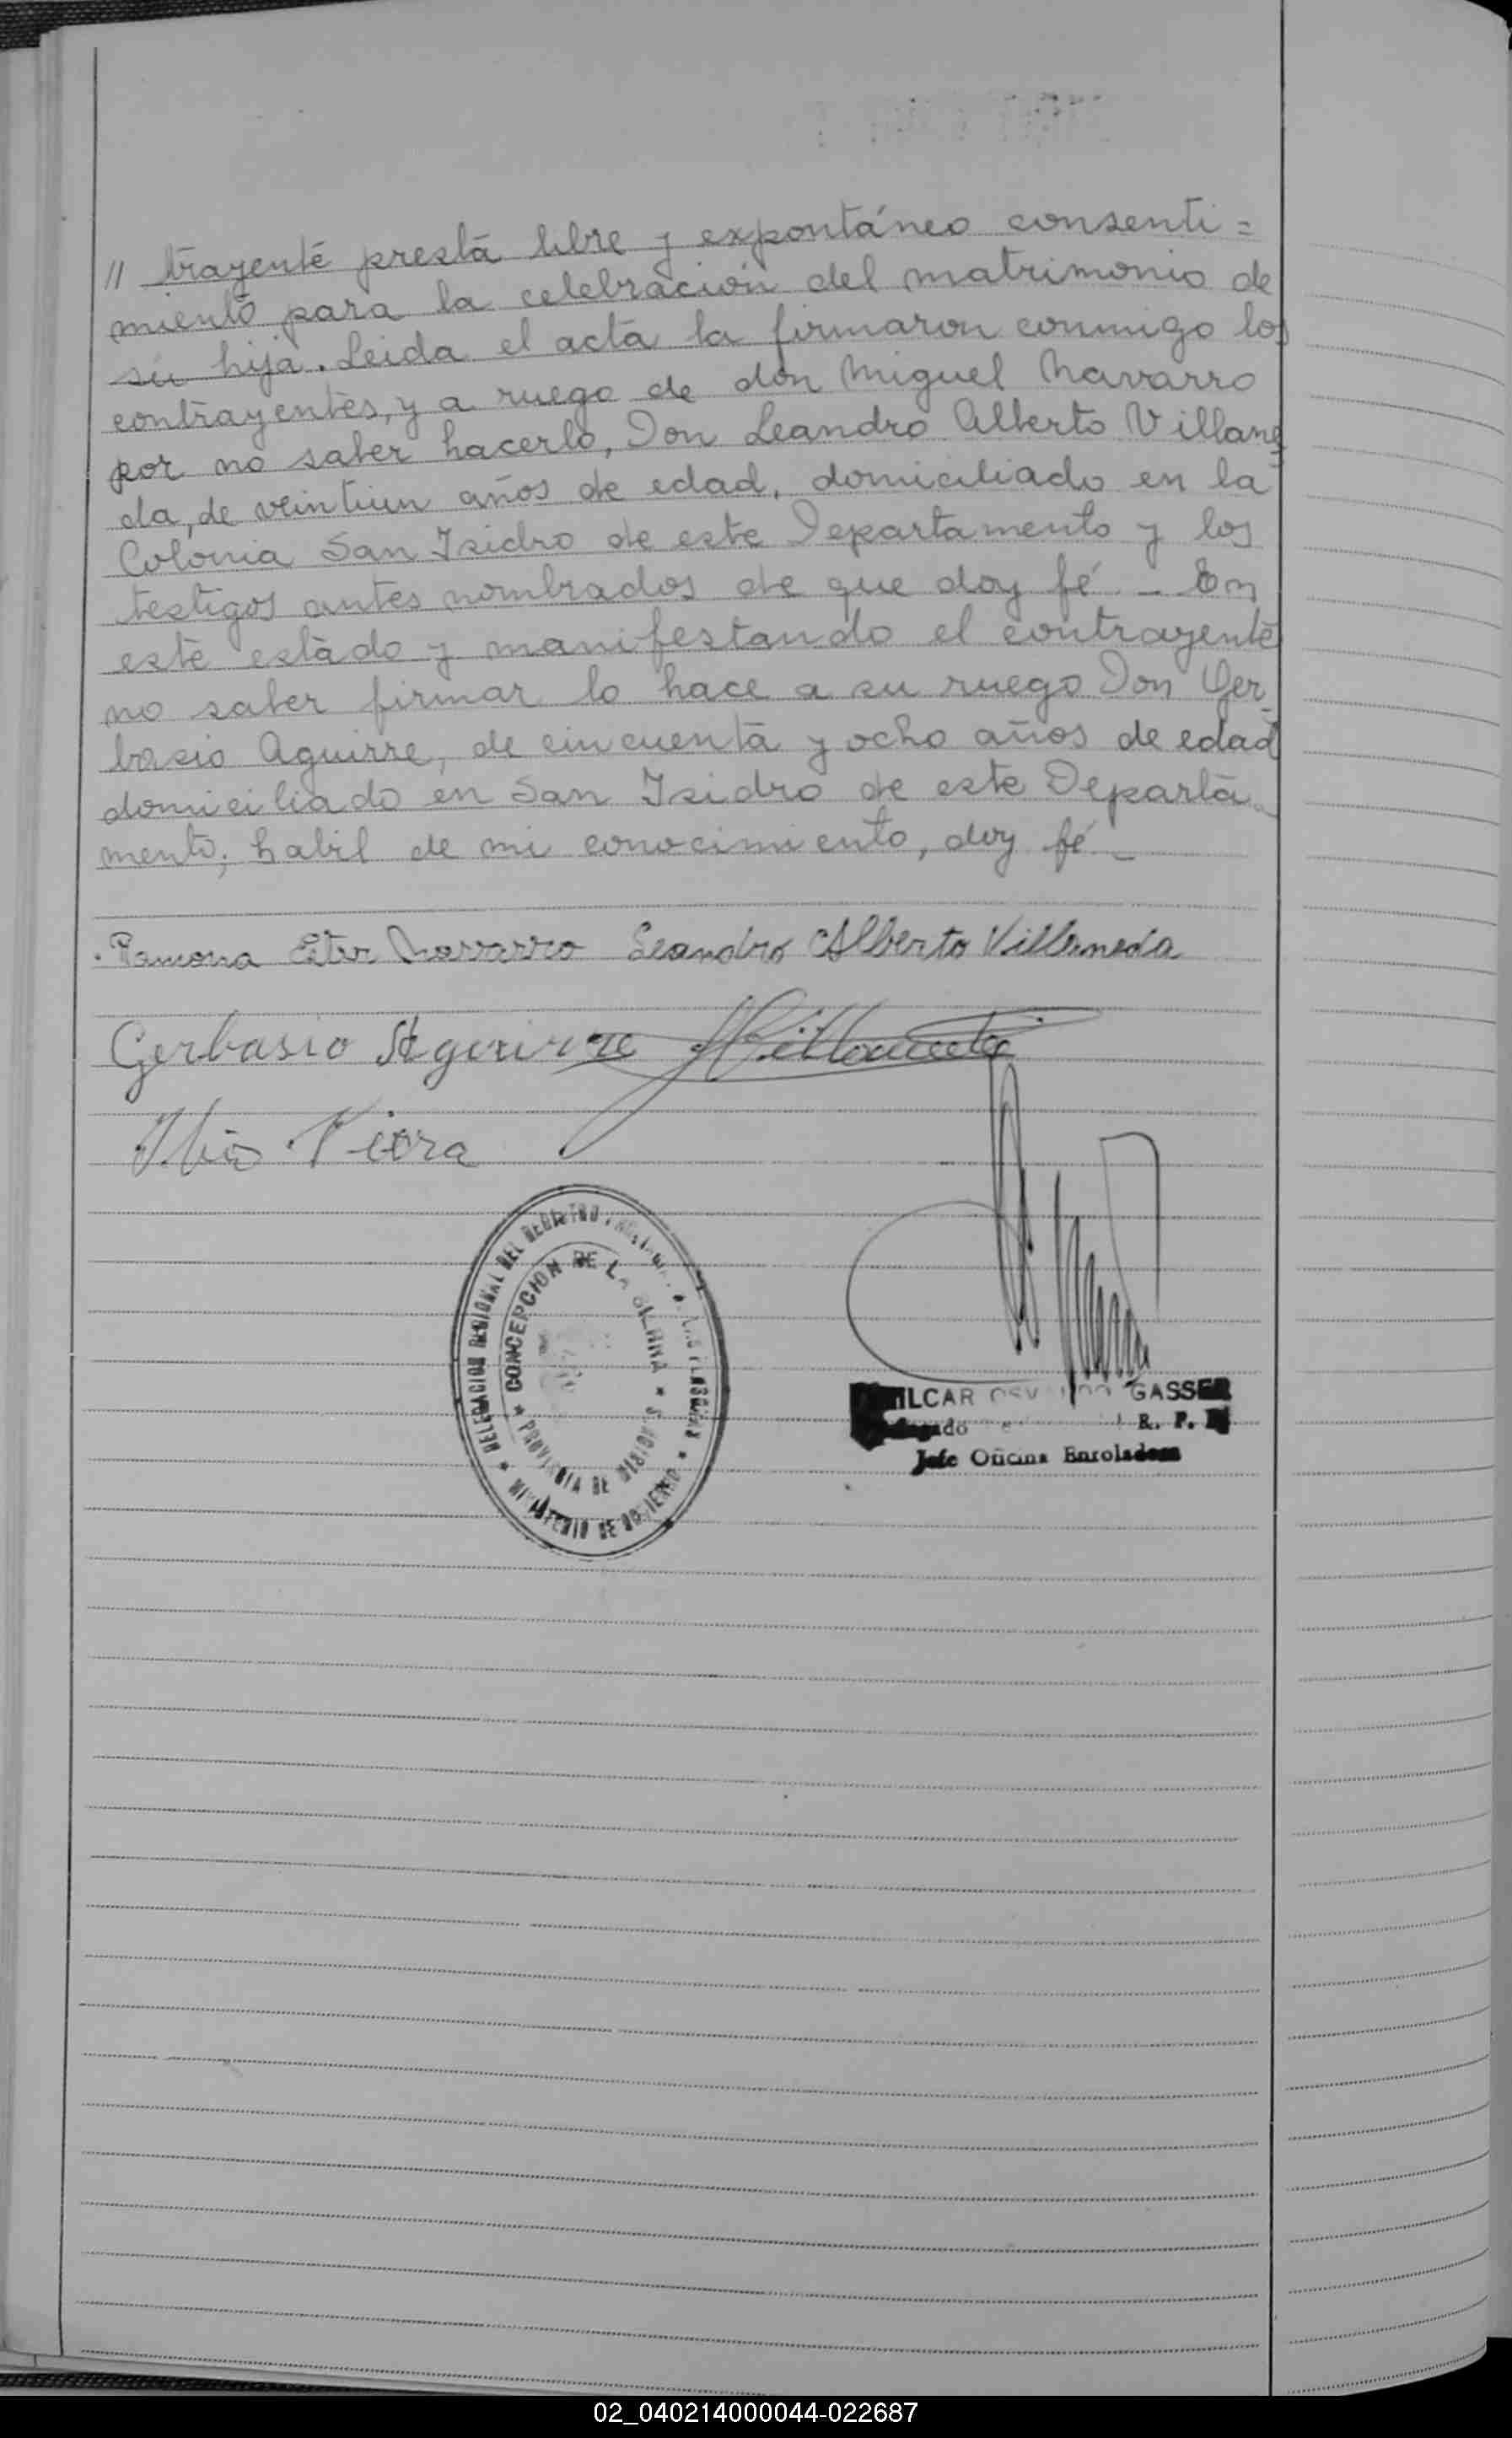 // trayente presta libre y expontáneo consenti=
miento para la celebración del matrimonio de
su hija. Leida el acta la firmaron conmigo los
contrayentes, y a ruego de don Miguel Navarro
por no saber hacerlo, Don Leandro Alberto Villane
da, de veintiun años de edad, domiciliado en la
Colonia San Isidro de este Departamento y los
testigos antes nombrados de que doy fé. - En
este estado y manifestando el contrayente
no saber firmar lo hace a su ruego Don Ger-
basio Aguirre, de cincuenta y ocho años de edad
domiciliado en San Isidro de este Departa-
mento; habil de mi conocimiento, doy fé.-
Ramona Ester Navarro Leandro Alberto Villaneda
Gerbasio Aguirre
Vieira
DELEGACION REGIONAL DEL REGISTRO DE LAS PERSONAS
CONCEPCION DE LA SIERRA
PROVINCIA DE MISIONES
MINISTERIO DE GOBIERNO
GASSER
R. P.
Jefe Oficina Enroladora
02_040214000044-022687